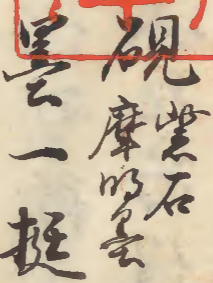 硯
紫石
摩明墨
墨一挺